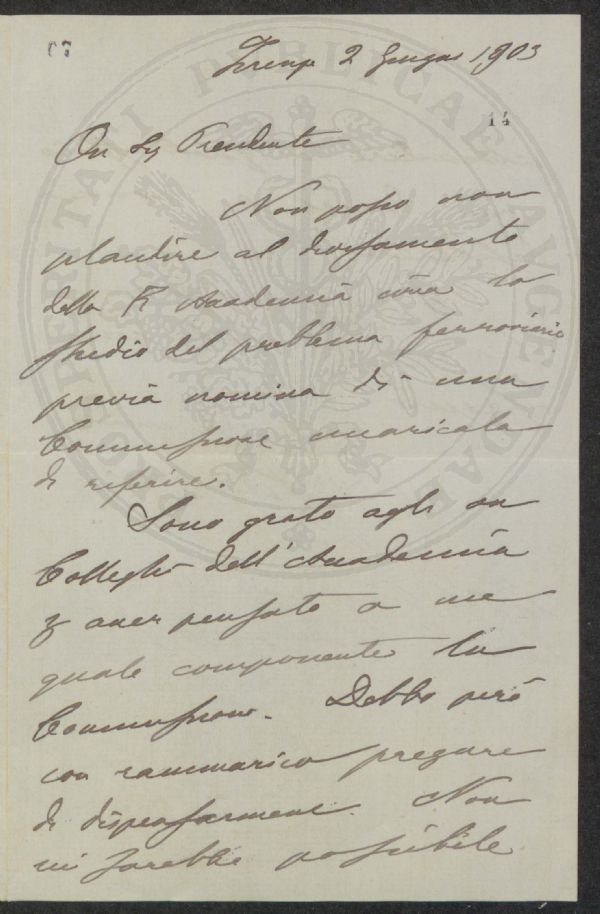 67
Firenze 2 Giugno 1903
14
On Sig Presidente
Non posso non
plaudire al divisamento
della R Accademia circa lo
studio del problema ferroviario
previa nomina di una
Commissione incaricata
di riferire.
Sono grato agli on
Colleghi dell'Accademia
aver pensato a me
quale componente la
Commissione. Debbo però
con rammarico pregare
di dispensarmene. Non
mi sarebbe possibile
PROSPERITATI PUBLICAE AUGENDAE